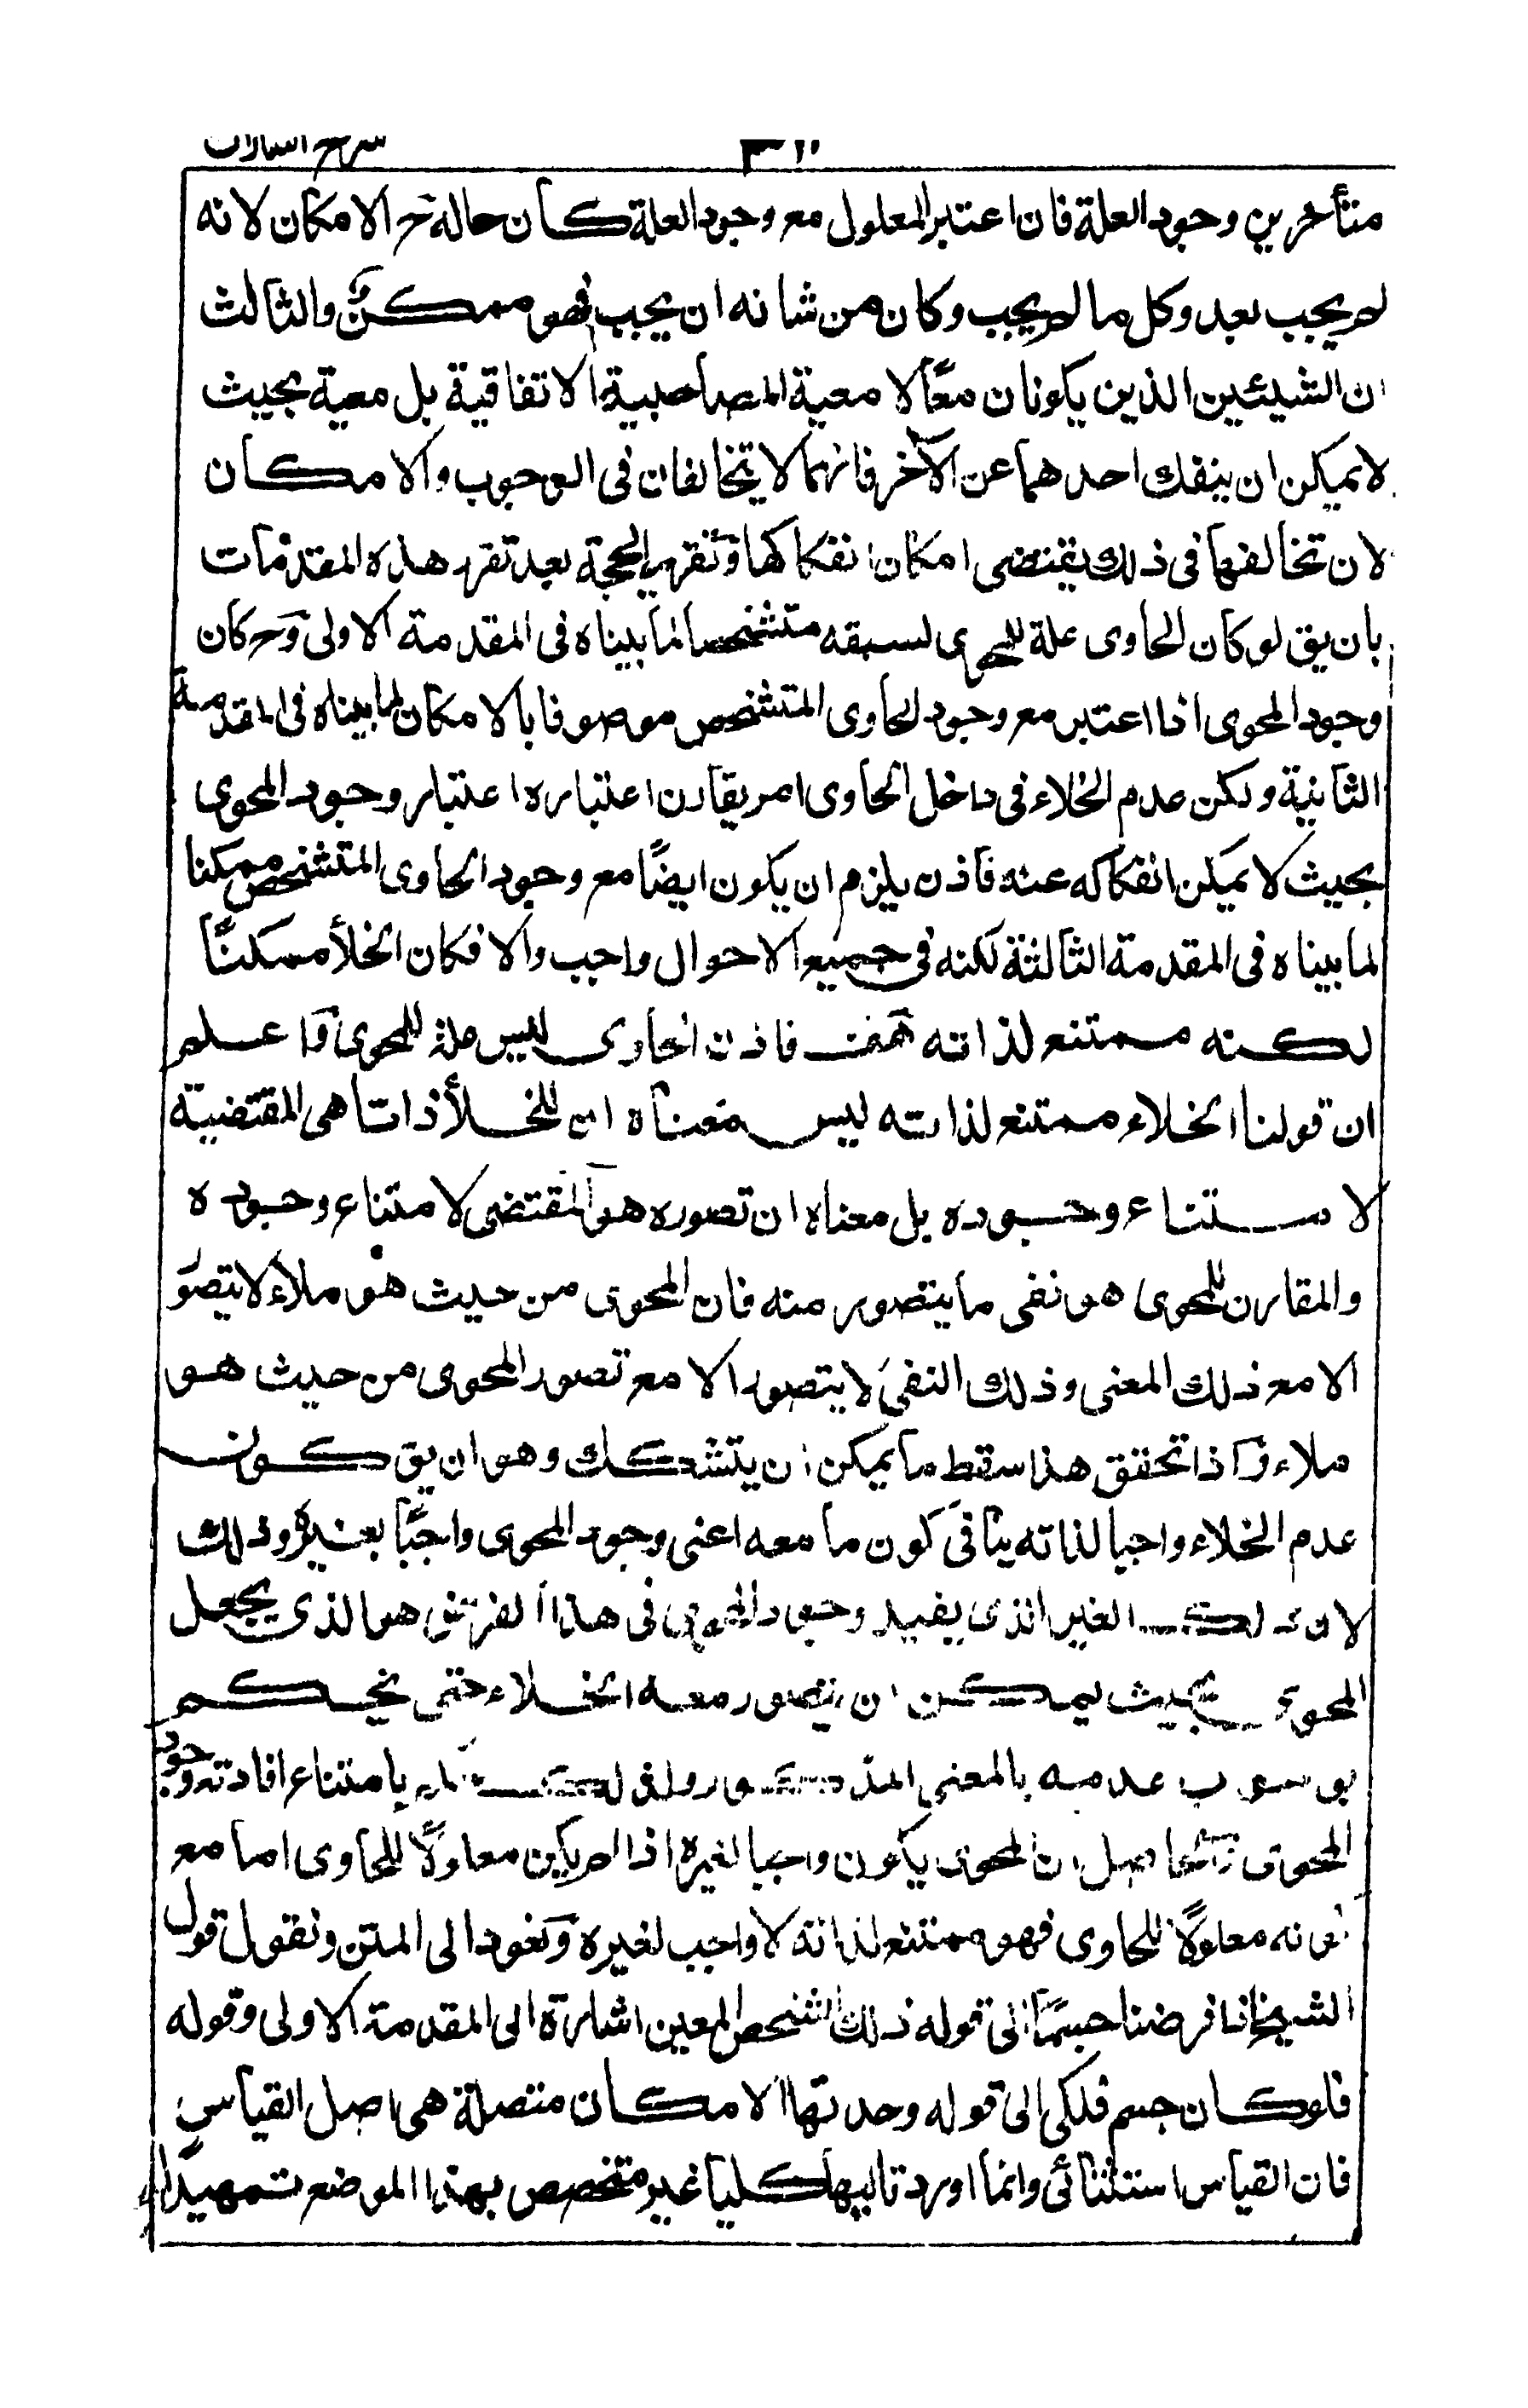 شرح اشارات
متأخرين وجود العلة فان اعتبر المعلول مع وجود العلة كان حاله ح الامكان لانه
لم يجب بعد وكل ما لم يجب وكان من شانه ان يجب فهو ممكن والثالث
ان الشيئين الذين يكونان معًا لا معية المصاحبية الاتفاقية بل معية بحيث
لا يمكن ان ينفك احدهما عن الآخر فانهما لا يتخالفان فى الوجوب والامكان
لان تخالفهما فى ذلك يقتضى امكان انفكاكهما وتقرير الحجة بعد تقرر هذه المقدمات
بان يق لو كان الحاوى علة للمحوى لسبقه متشخصا لما بيناه فى المقدمة الاولى وح كان
وجود المحوى اذا اعتبر مع وجود الحاوى المتشخص موصوفا بالامكان لما بيناه فى المقدمة
الثانية ولكن عدم الخلاء فى داخل الحاوى امر يقارن اعتباره اعتبار وجود المحوى
بحيث لا يمكن انفكاكه عنه فاذن يلزم ان يكون ايضًا مع وجود الحاوى المتشخص ممكنا
لما بيناه فى المقدمة الثالثة لكنه فى جميع الاحوال واجب والا فكان الخلأ ممكنًا
لكنه ممتنع لذاته هف فاذن الحاوى ليس علة للمحوى واعلم
ان قولنا الخلاء ممتنع لذاته ليس معناه ان للخلأ ذاتا هى المقتضية
لامتناع وجوده بل معناه ان تصوره هو المقتضى لامتناع وجوده
والمقارن للمحوى هو نفى ما يتصور منه فان المحوى من حيث هو ملاء لا يتصور
الا مع ذلك المعنى وذلك النفى لا يتصور الا مع تصور المحوى من حيث هو
ملاء واذا تحقق هذا سقط ما يمكن ان يتشكك وهو ان يق كون
عدم الخلاء واجبا لذاته ينافى كون ما معه اعنى وجود المحوى واجبًا بغيره وذلك
لان ذلك الغير الذى يفيد وجود المحوى فى هذا الفرض هو الذى يجعل
المحوى بحيث يمكن ان يتصور معه الخلاء حتى يحكم
بوجوب عدمه بالمعنى المذكور ولذلك بامتناع افادته وجود
المحوى فالحاصل ان المحوى يكون واجبا لغيره اذا لم يكن معلولًا للحاوى اما مع
كونه معلولًا للحاوى فهو ممتنع لذاته لا واجب لغيره ونعود الى المتن ونقول قول
الشيخ اذا فرضنا جسمًا الى قوله ذلك الشخص المعين اشارة الى المقدمة الاولى وقوله
فلو كان جسم فلكى الى قوله وجدتها الامكان متصلة هى اصل القياس
فان القياس استثنائى وانما اورد تاليها كليا غير متخصص بهذا الموضع تمهيدا